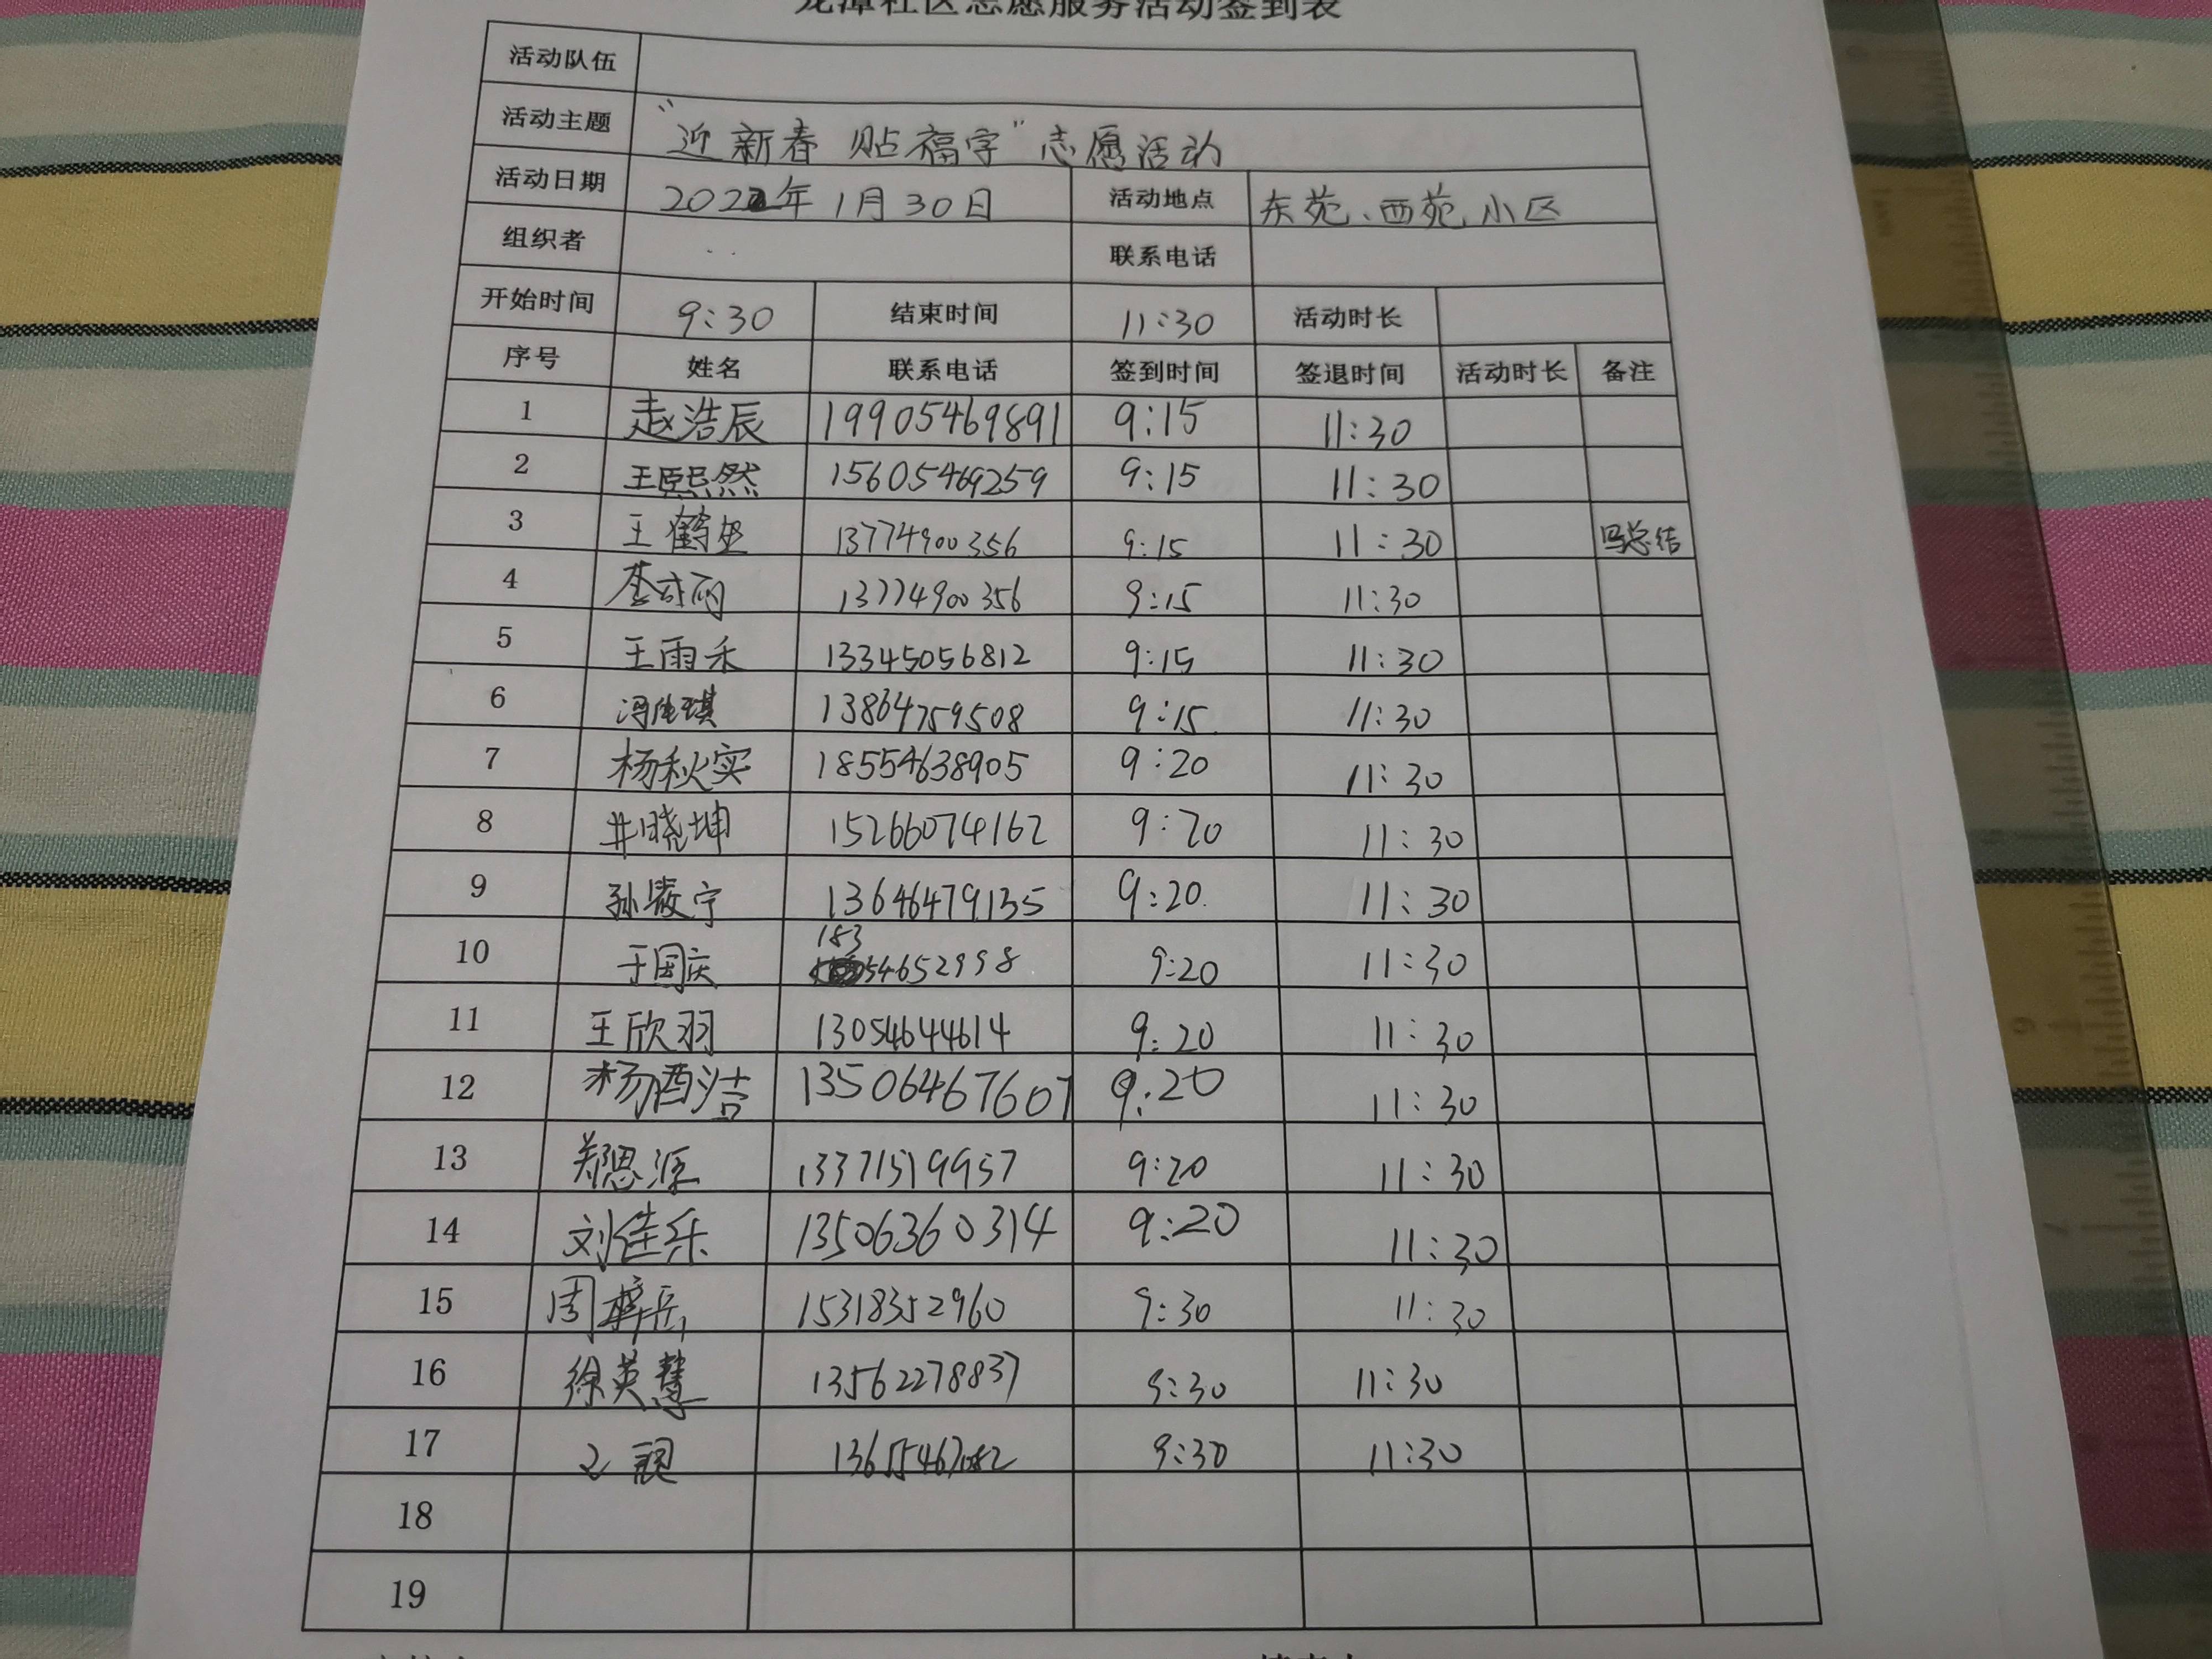 龙潭社区志愿服务活动签到表
活动队伍
活动主题 “迎新春 贴福字”志愿活动
活动日期 2022年1月30日 活动地点 东苑、西苑小区
组织者 联系电话
开始时间 9:30 结束时间 11:30 活动时长
序号 姓名 联系电话 签到时间 签退时间 活动时长 备注
1 赵浩辰 19905469891 9:15 11:30
2 王熙然 15605469259 9:15 11:30
3 王鹤 13774900356 9:15 11:30 写总结
4 13774900356 9:15 11:30
5 王雨禾 13345056812 9:15 11:30
6 冯 琪 13864759508 9:15 11:30
7 杨秋实 18554638905 9:20 11:30
8 井晓坤 15266074162 9:20 11:30
9 孙 宁 13646479135 9:20 11:30
10 于国庆 18354652998 9:20 11:30
11 王欣羽 13054644614 9:20 11:30
12 杨 洁 13506467607 9:20 11:30
13 郑思源 13371519957 9:20 11:30
14 刘佳乐 13506360314 9:20 11:30
15 周 15318352960 9:30 11:30
16 徐英慧 13562278837 9:30 11:30
17 9:30 11:30
18
19